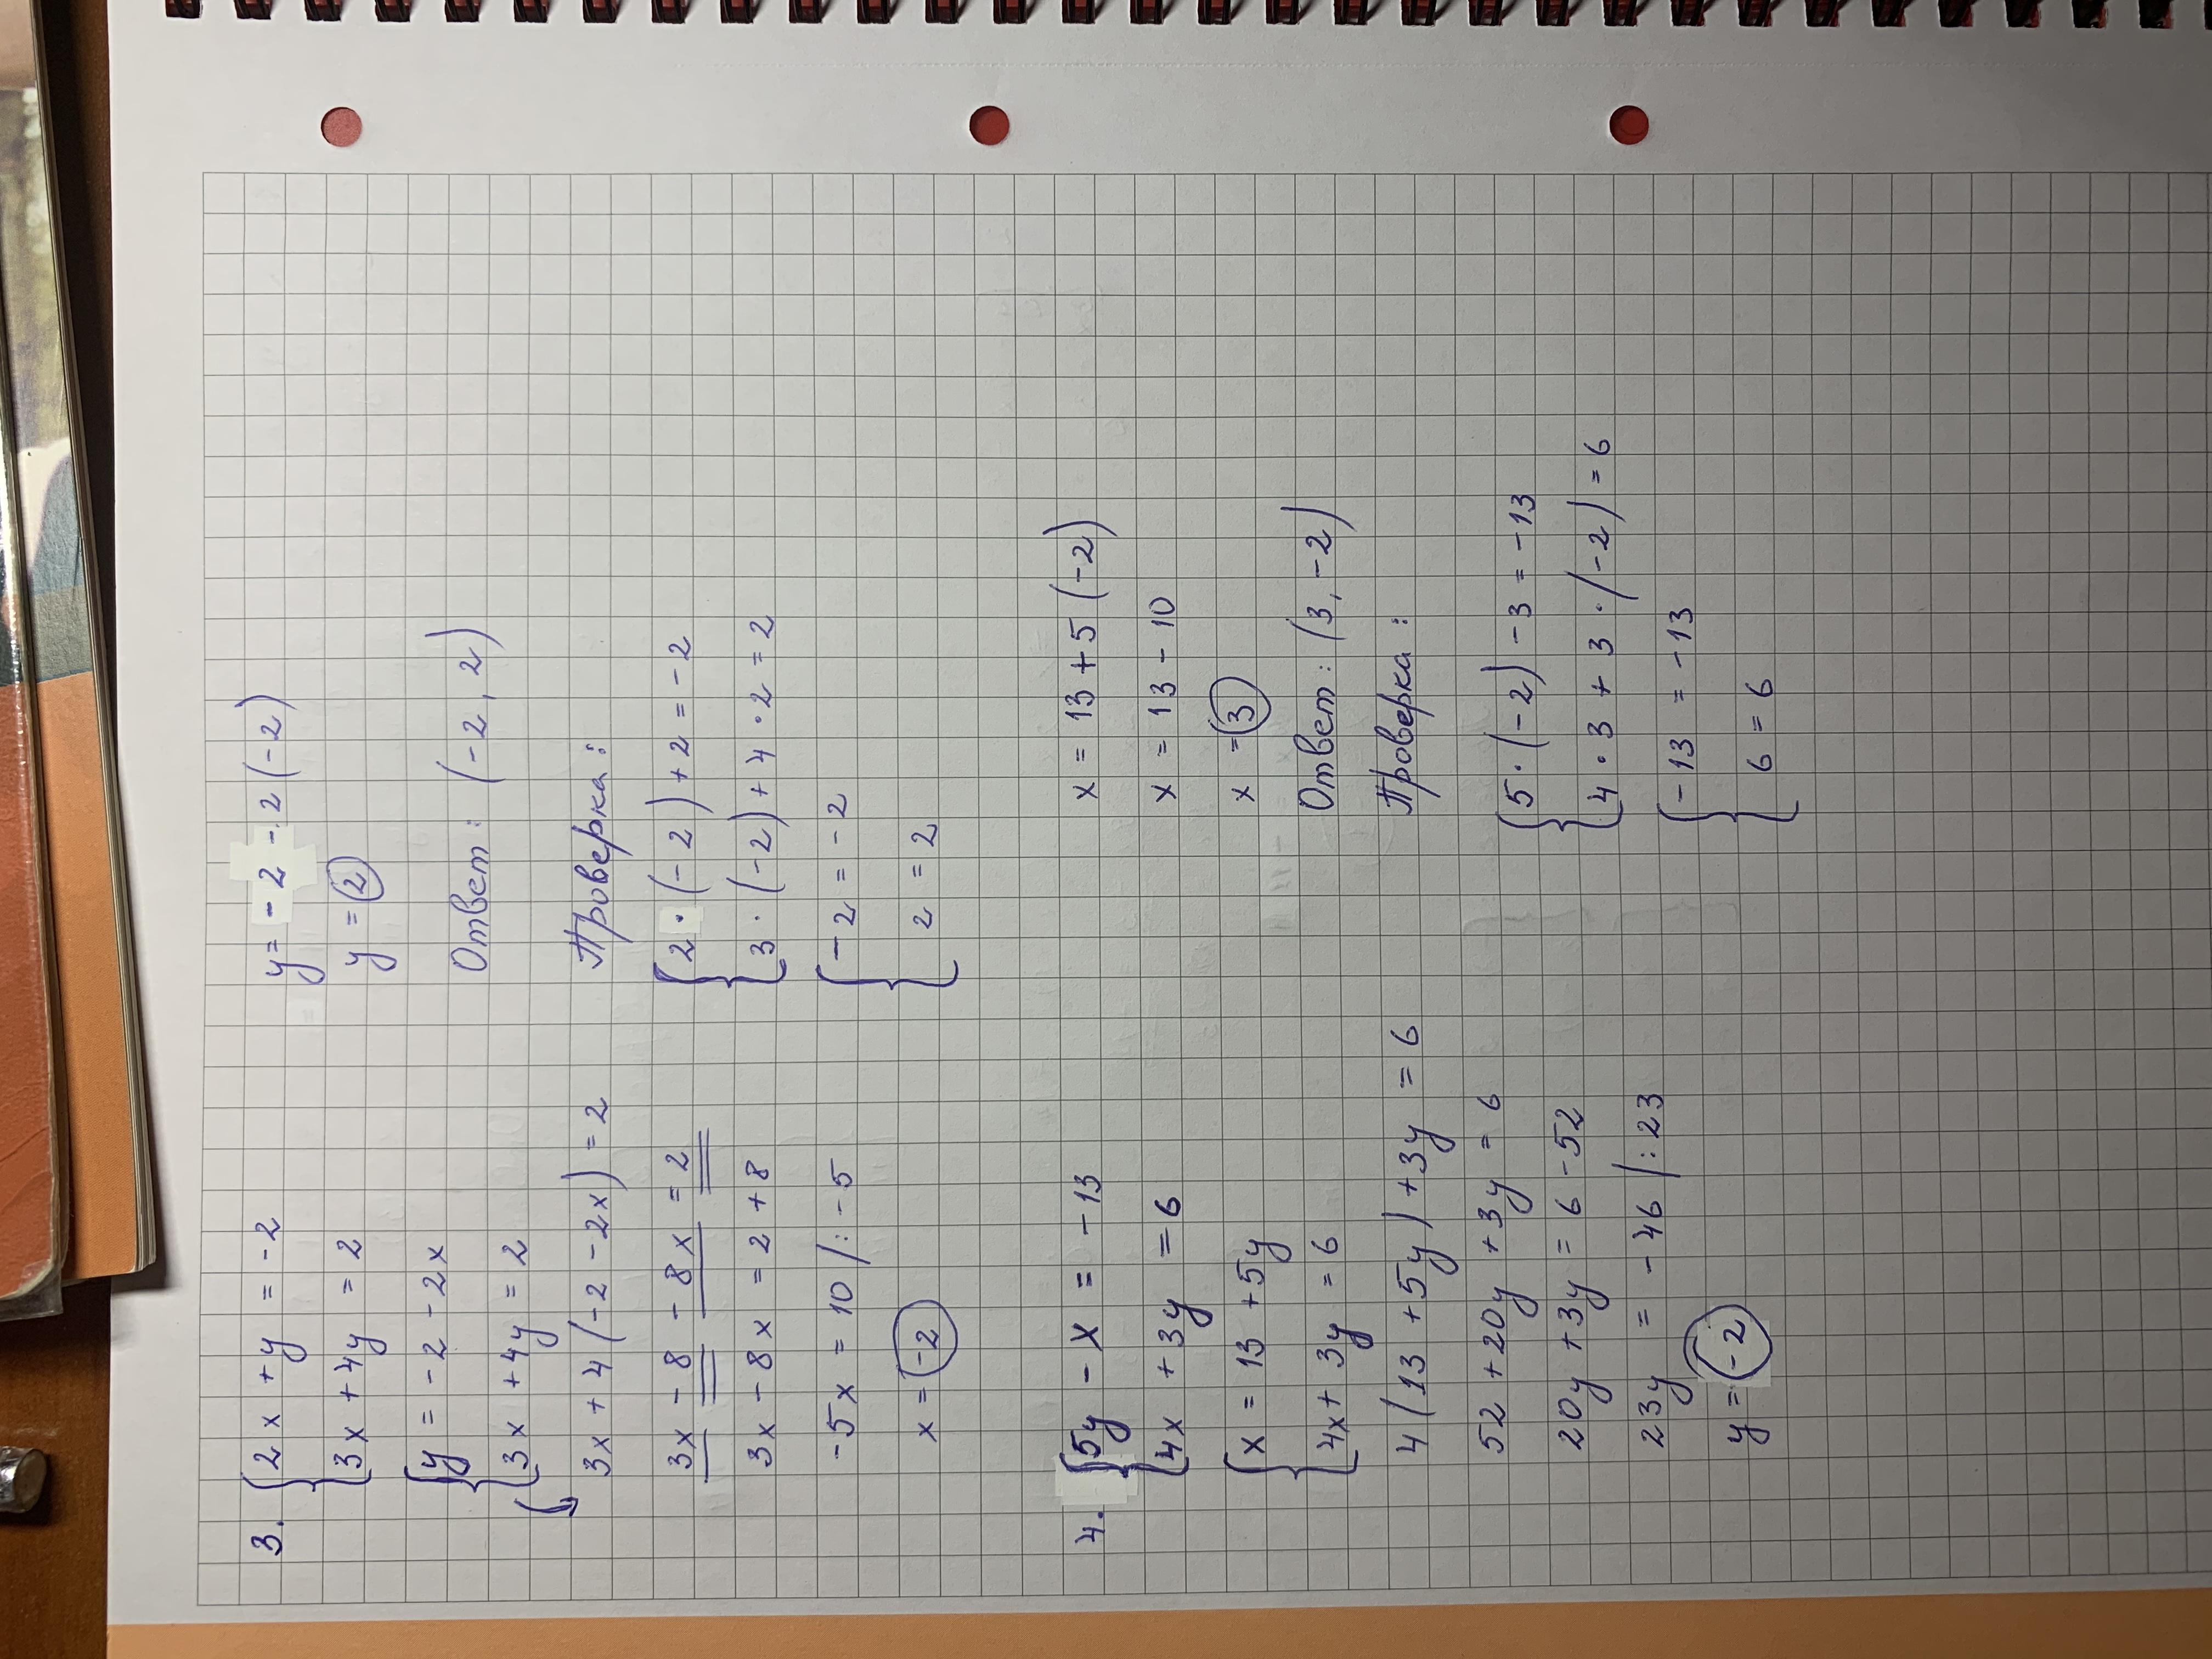 3. {2x + y = -2
{3x + 4y = 2
{y = -2 - 2x
{3x + 4y = 2
3x + 4(-2 - 2x) = 2
3x - 8 - 8x = 2
3x - 8x = 2 + 8
-5x = 10 /: -5
x = -2
y = -2 - 2(-2)
y = 2
Ответ: (-2, 2)
Проверка:
{2 · (-2) + 2 = -2
{3 · (-2) + 4 · 2 = 2
{-2 = -2
{2 = 2
4. {5y - x = -13
{4x + 3y = 6
{x = 13 + 5y
{4x + 3y = 6
4(13 + 5y) + 3y = 6
52 + 20y + 3y = 6
20y + 3y = 6 - 52
23y = -46 /: 23
y = -2
x = 13 + 5(-2)
x = 13 - 10
x = 3
Ответ: (3, -2)
Проверка:
{5 · (-2) - 3 = -13
{4 · 3 + 3 · (-2) = 6
{-13 = -13
{6 = 6